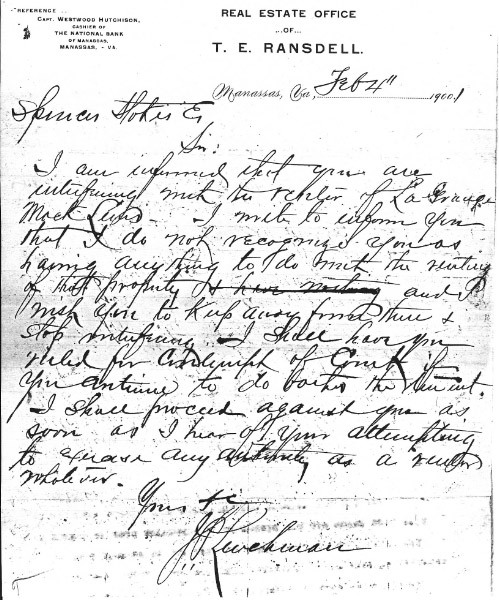 REFERENCE
CAPT. WESTWOOD HUTCHISON,
CASHIER OF
THE NATIONAL BANK
OF MANASSAS,
MANASSAS, - VA.
REAL ESTATE OFFICE
...OF...
T. E. RANSDELL.
Manassas, Va., Feb 4" 1901
Spencer
Sir:
I am informed that you are
interfering with the renter of La Grange
Mack Lewis. I write to inform you
that I do not recognize you as
having anything to do with the renting
of that property & have nothing and I
wish you to keep away from there &
stop interfering. I shall have you
ruled for Contempt of Court if
you continue to do bother the tenant.
I shall proceed against you as
soon as I hear of your attempting
to any authority as a
whatever.
Yours &c